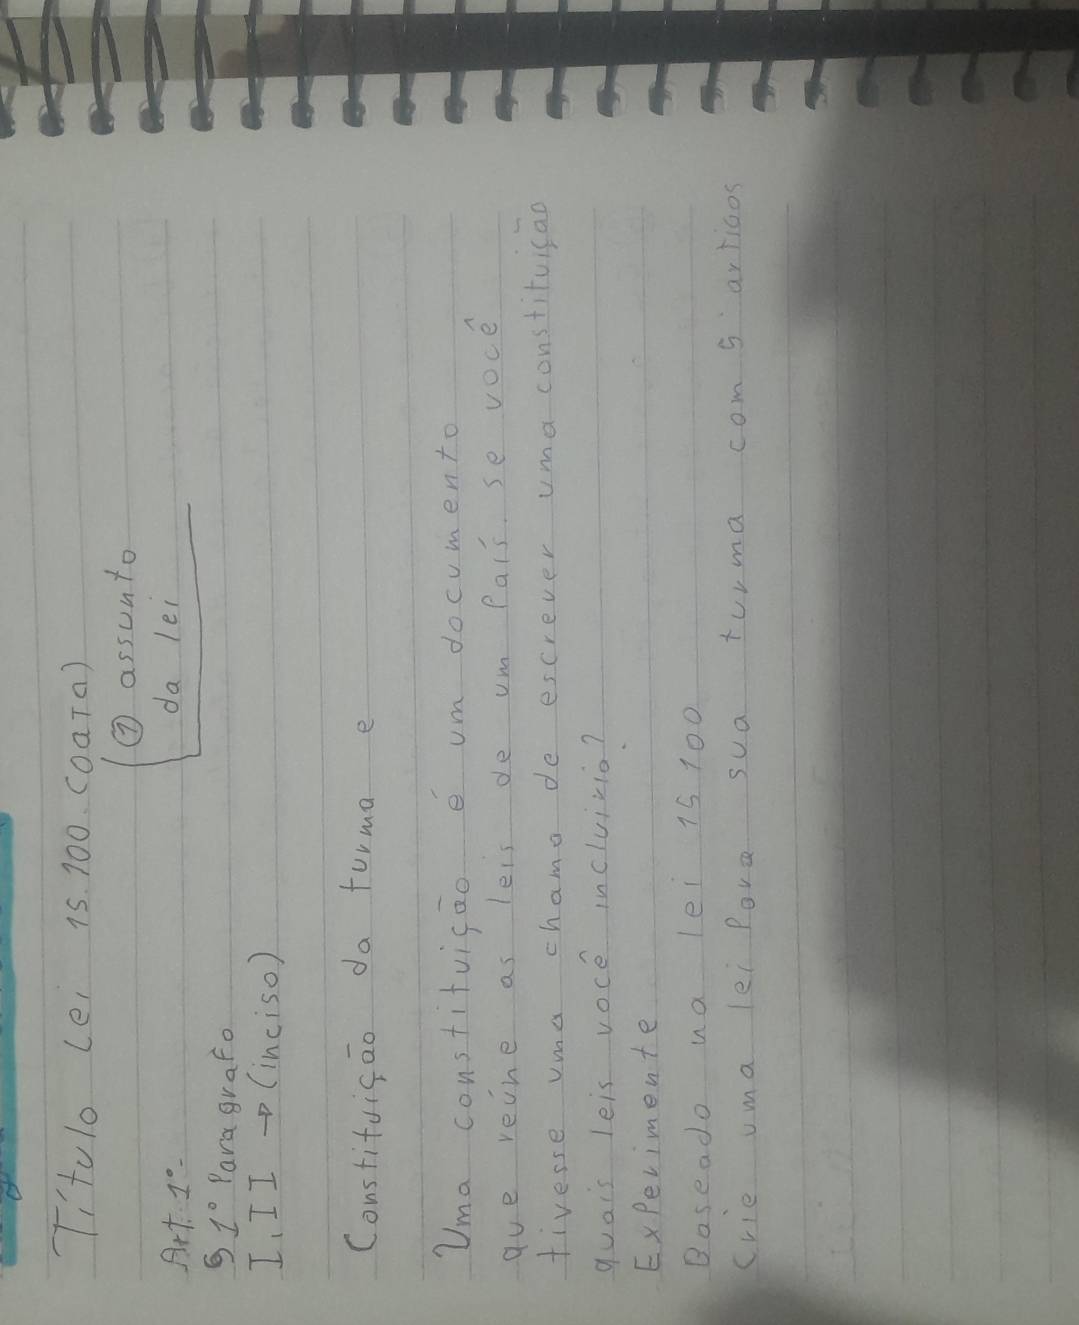 Título Lei 15.100.(OATA)
(1) assunto
da lei
Art. 1º-
§ 1º Paragrafo
I, II → (inciso)
Constituição da turma e
Uma constituição é um documento
que reúne as leis de um País. se você
tivesse uma chama de escrever uma constituição
quais leis você incluiria?
Experimente
Baseado na lei 15.100
Crie uma lei Para sua turma com 5 artigos